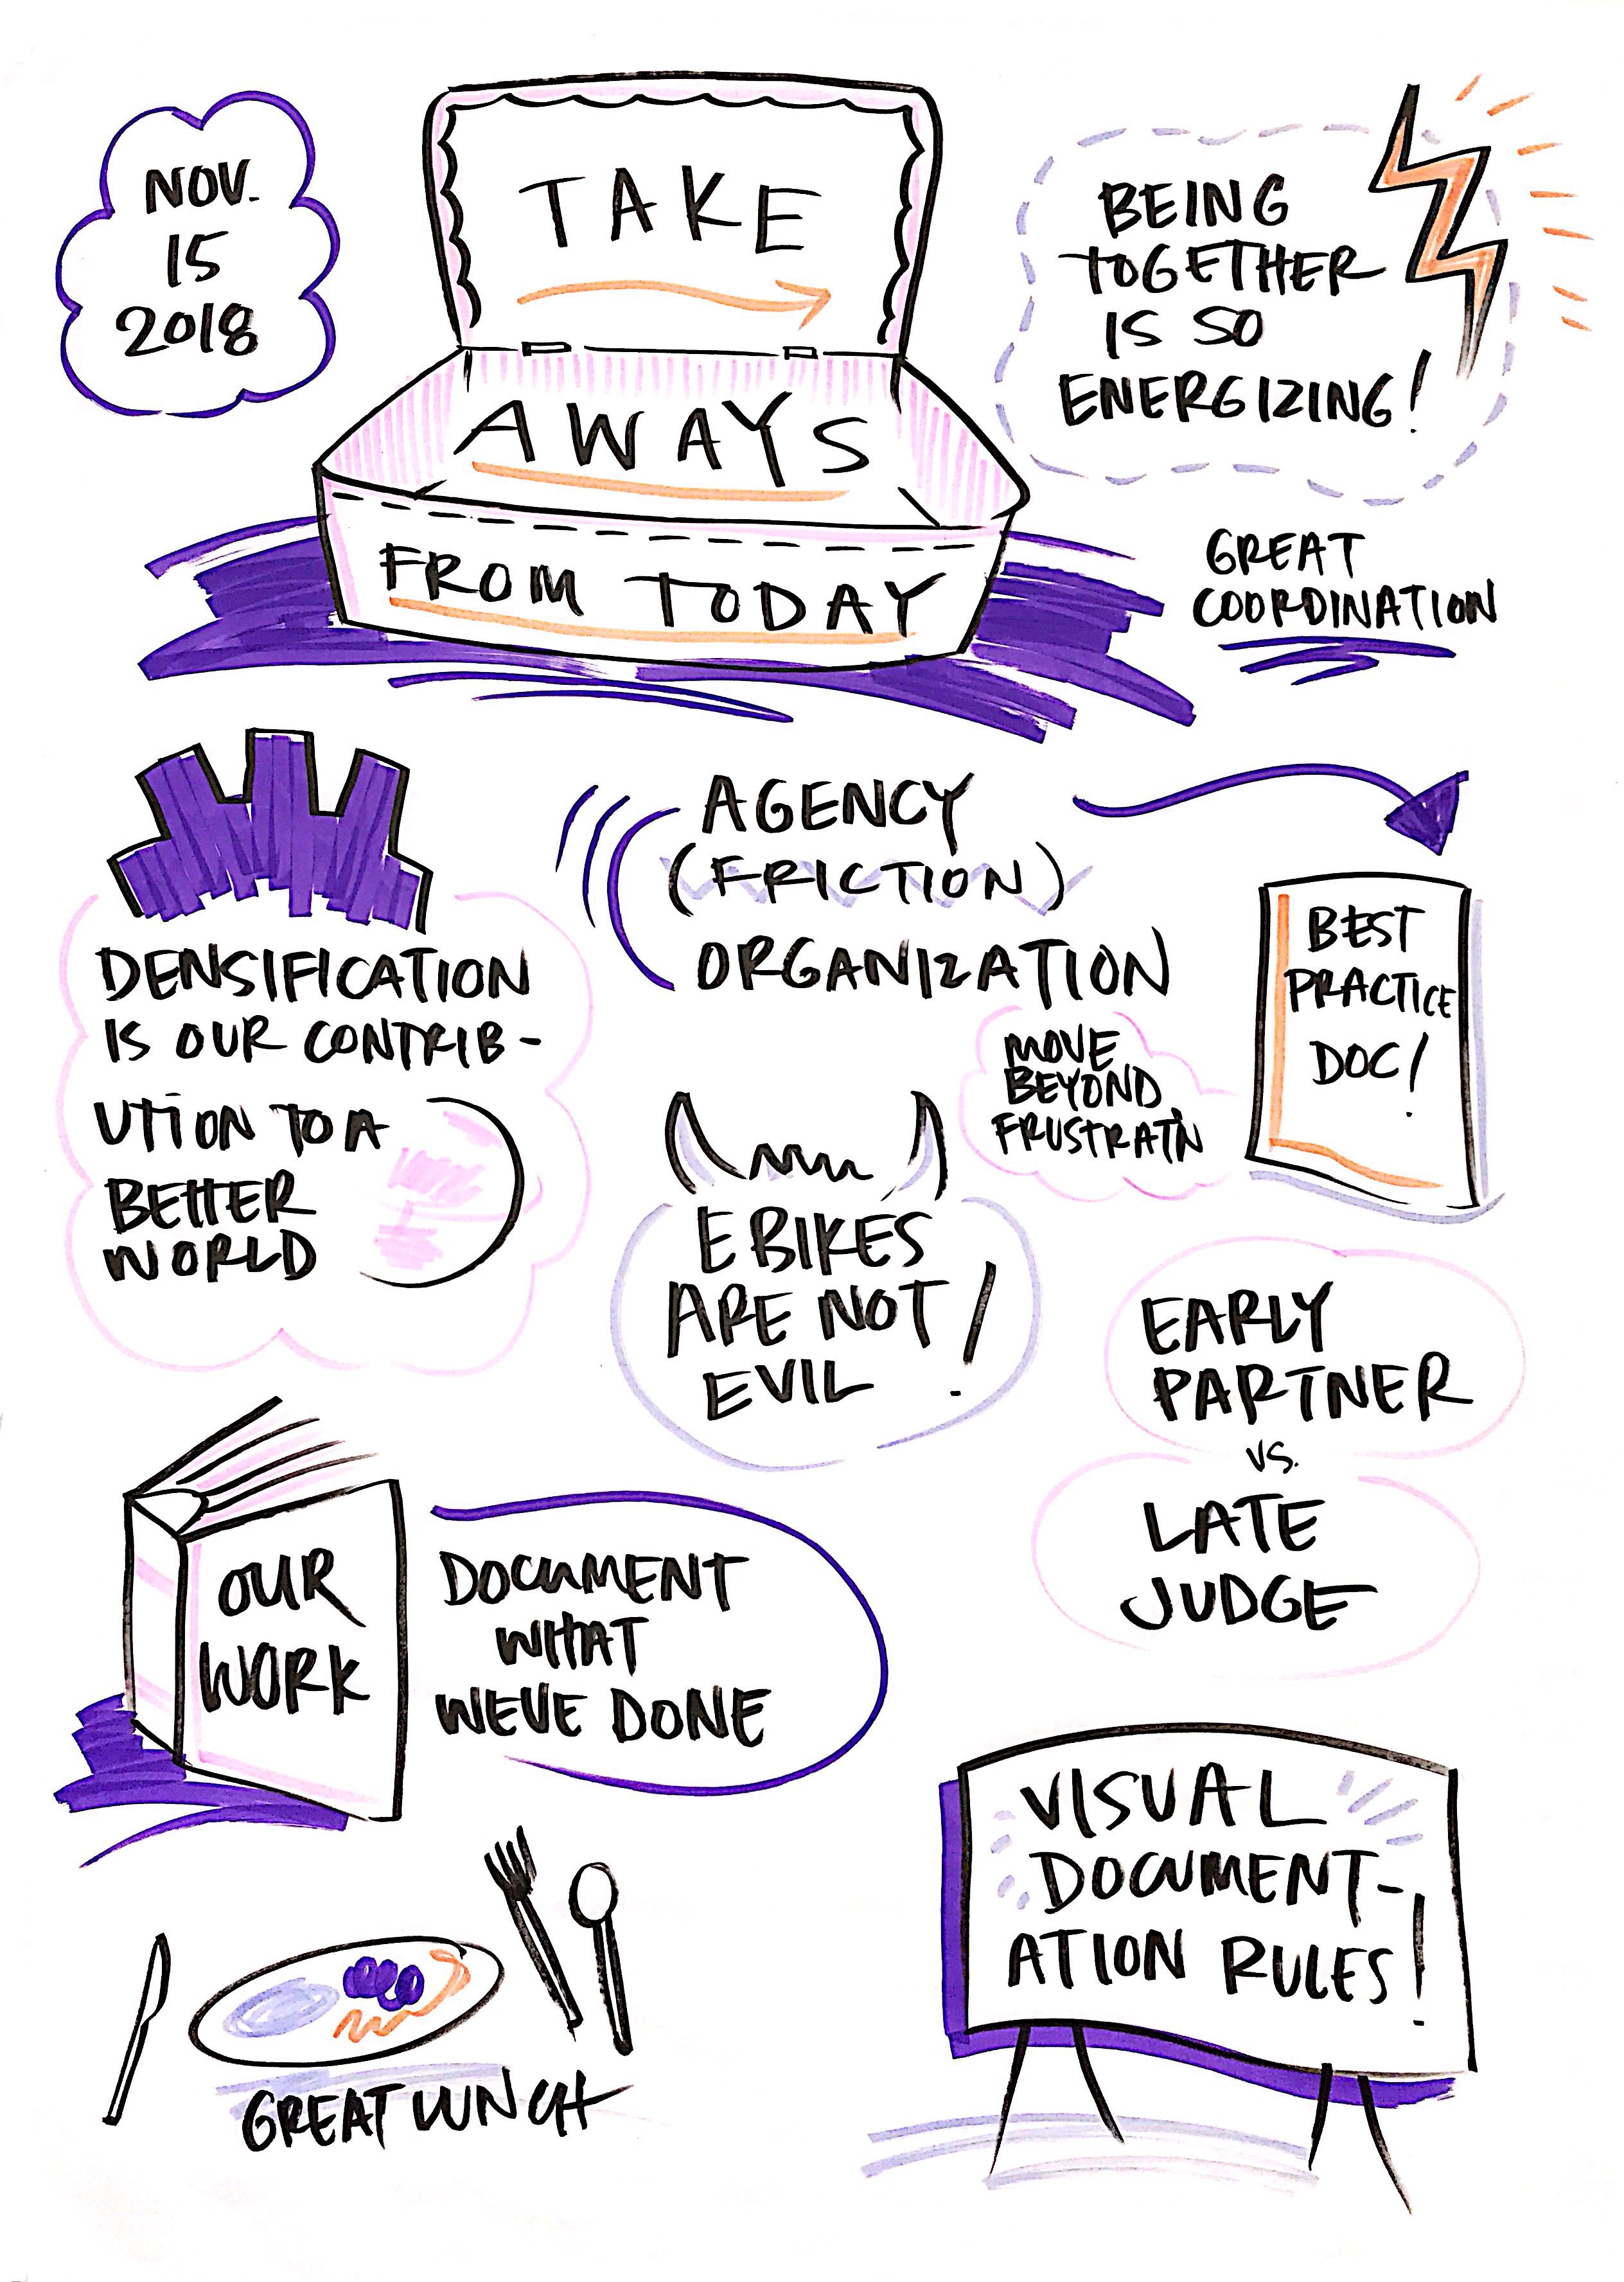 NOV.
15
2018
TAKE
AWAYS
FROM TODAY
BEING
TOGETHER
IS SO
ENERGIZING!
GREAT
COORDINATION
DENSIFICATION
IS OUR CONTRIB-
UTION TO A
BETTER
WORLD
AGENCY
(FRICTION)
ORGANIZATION
MOVE
BEYOND
FRUSTRATN
BEST
PRACTICE
DOC!
E BIKES
ARE NOT
EVIL!
EARLY
PARTNER
VS.
LATE
JUDGE
OUR
WORK
DOCUMENT
WHAT
WEVE DONE
GREAT LUNCH
VISUAL
DOCUMENT-
ATION RULES!